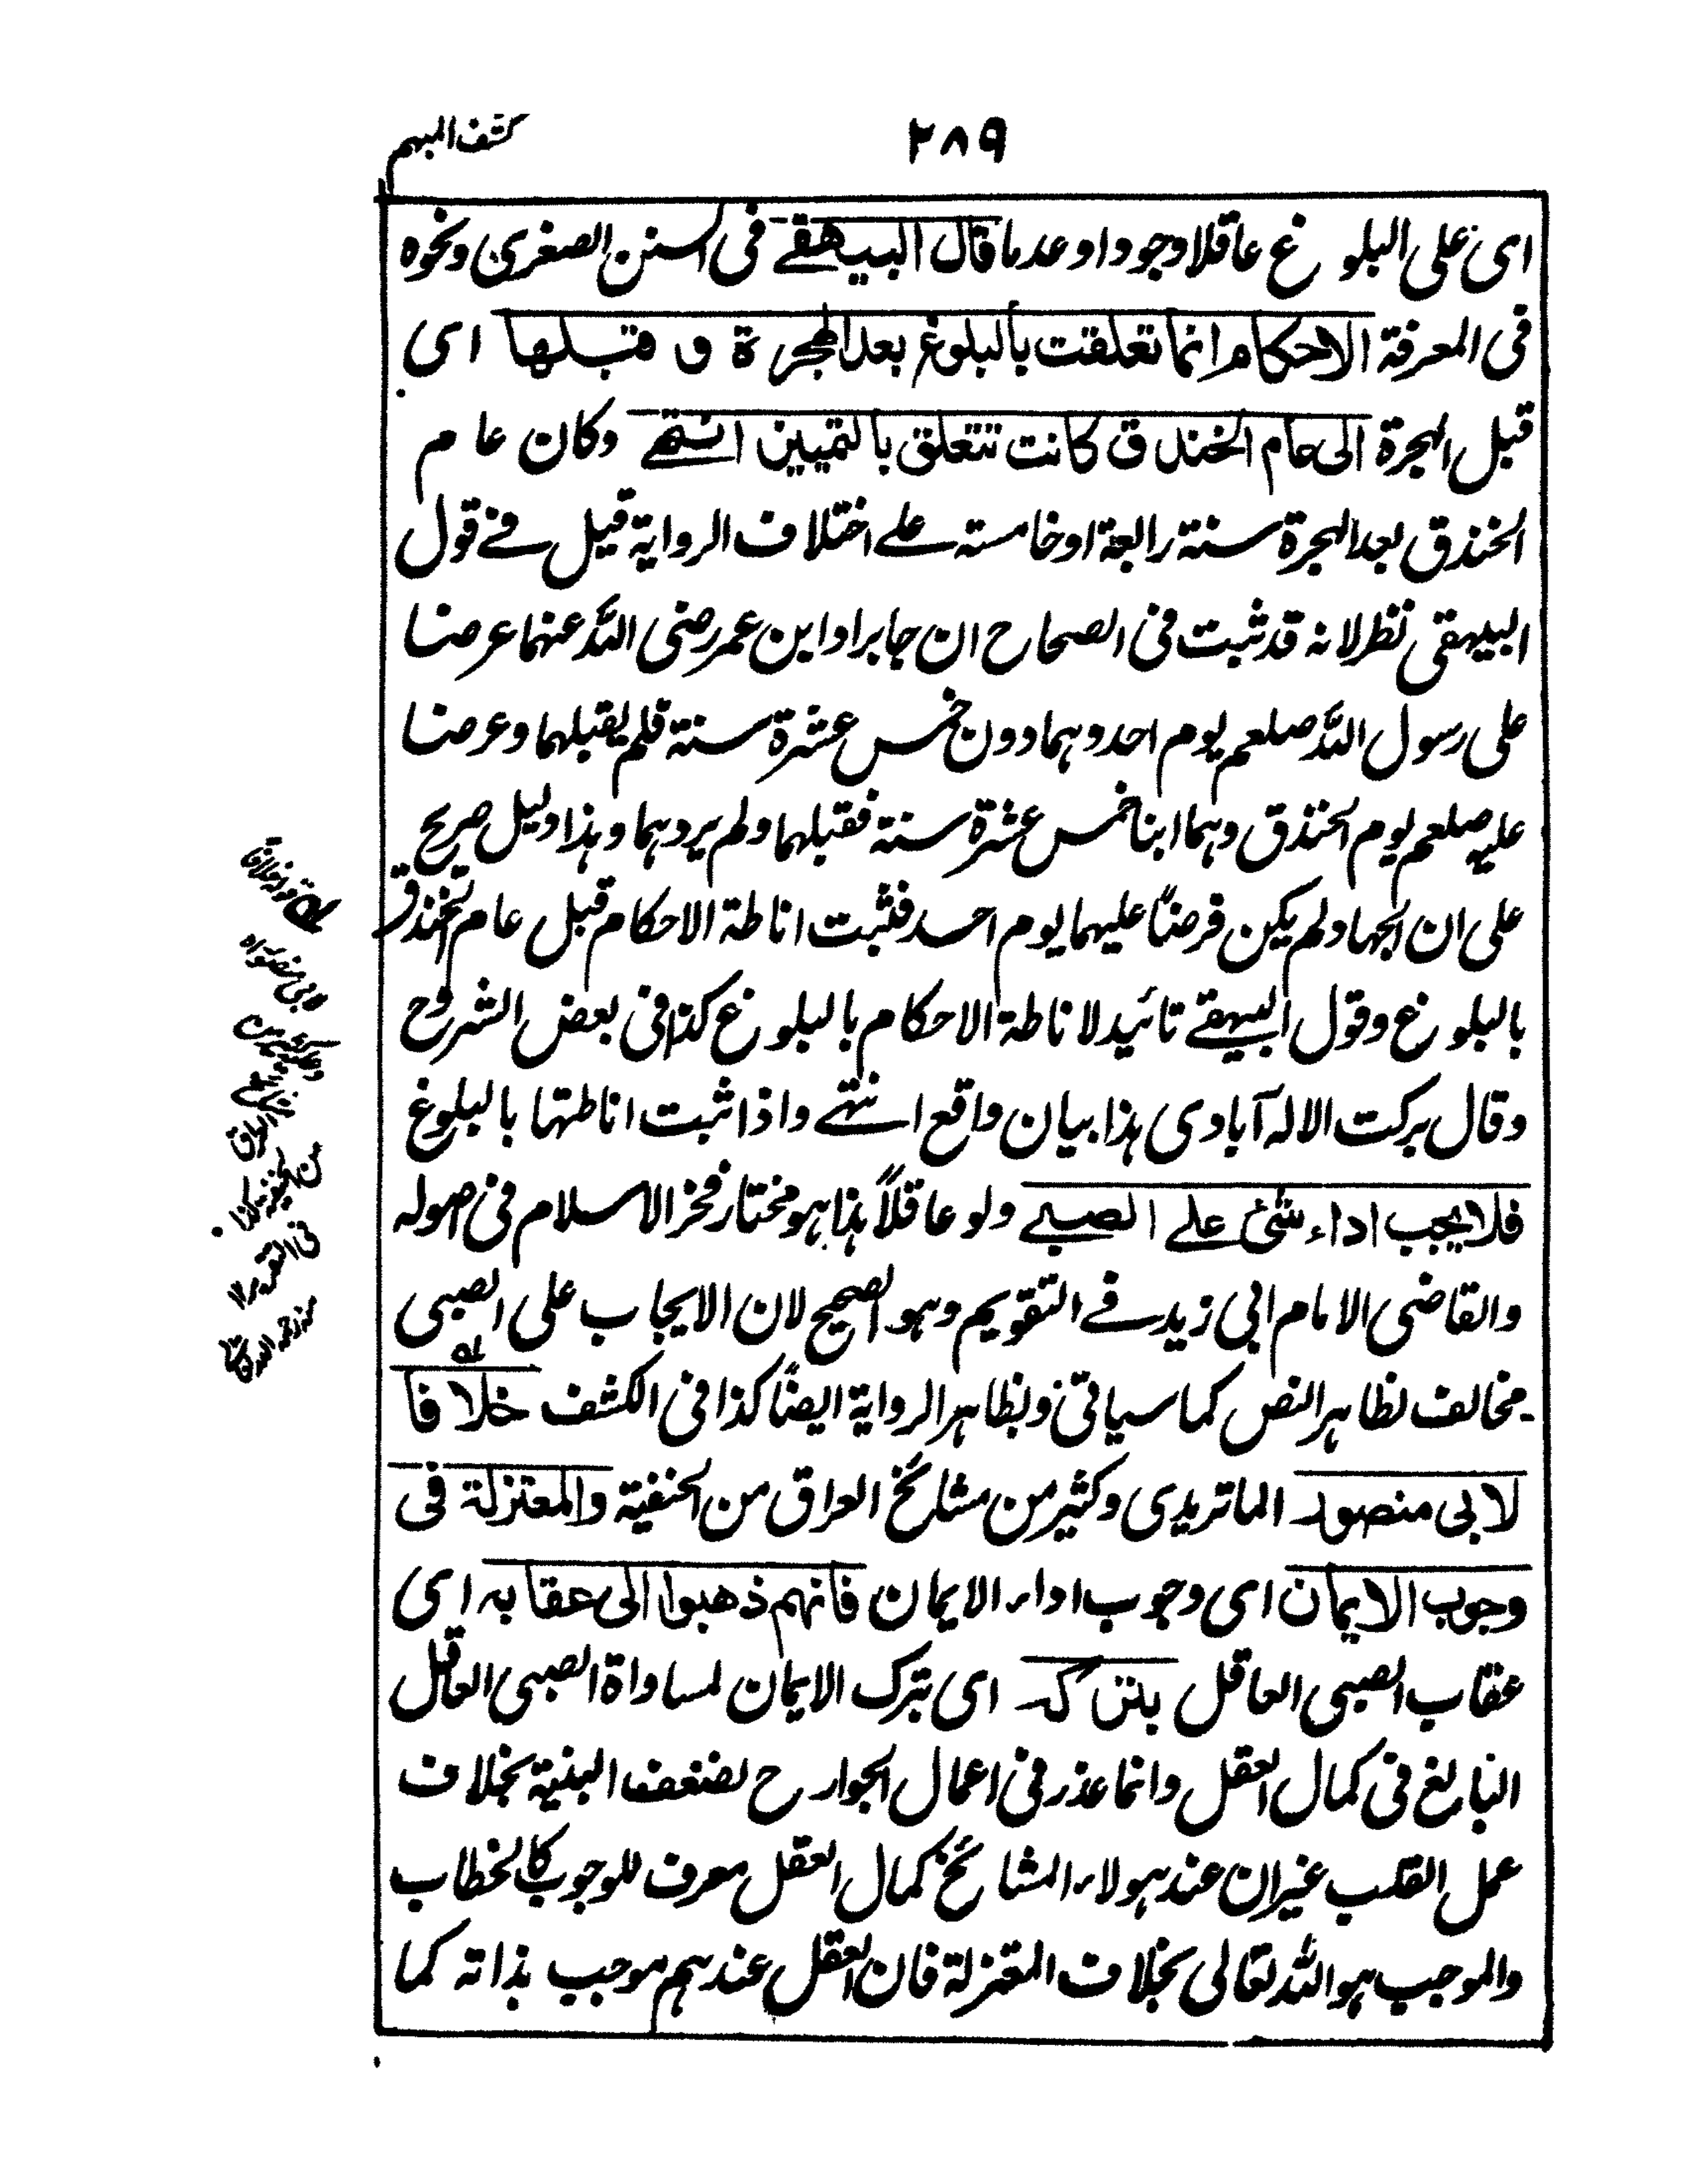 ٢٨٩
كشف المبهم
اى على البلوغ عاقلا وجودا وعدما قال البيهقے فى السنن الصغرى ونحوه
فى المعرفة الاحكام انما تعلقت بالبلوغ بعد الهجرة و قبلها اى
قبل الهجرة الى عام الخندق كانت تتعلق بالتمييز انتهے وكان عام
الخندق بعد الهجرة سنة رابعة او خامسته علے اختلاف الرواية قيل فے قول
البيهقى نظر لانه قد ثبت فى الصحاح ان جابرا وابن عمر رضى الله عنهما عرضا
على رسول الله صلعم يوم احد وهما دون خمس عشرة سنة فلم يقبلهما وعرضا
عليه صلعم يوم الخندق وهما ابنا خمس عشرة سنة فقبلهما ولم يردهما وهذا دليل صريح
على ان الجهاد لم يكن فرضاً عليهما يوم احد فثبت اناطة الاحكام قبل عام الخندق
بالبلوغ وقول البيهقے تائيد لاناطة الاحكام بالبلوغ كذا فى بعض الشروح
وقال بركت الاله آبادى هذا بيان واقع انتهے واذا ثبت اناطتها بالبلوغ
فلا يجب اداء شئ علے الصبے ولو عاقلاً هذا هو مختار فخر الاسلام فى اصوله
والقاضى الامام ابى زيد فے التقويم وهو الصحيح لان الايجاب على الصبى
مخالف لظاهر النص كما سياتى ولظاهر الرواية ايضاً كذا فى الكشف خلافا
لابى منصور الماتريدى وكثير من مشائخ العراق من الحنفية والمعتزلة فى
وجوب الايمان اى وجوب اداء الايمان فانهم ذهبوا الى عقابه اى
عقاب الصبى العاقل بتركه اى بترك الايمان لمساواة الصبى العاقل
البالغ فى كمال العقل وانما عذر فى اعمال الجوارح لضعف البنية بخلاف
عمل القلب غير ان عند هولاء المشائخ كمال العقل معرف للوجوب كالخطاب
والموجب هو الله تعالى بخلاف المعتزلة فان العقل عندهم موجب بذاته كما
قوله خلافا
لابى منصور اه
من الحنفية كذا